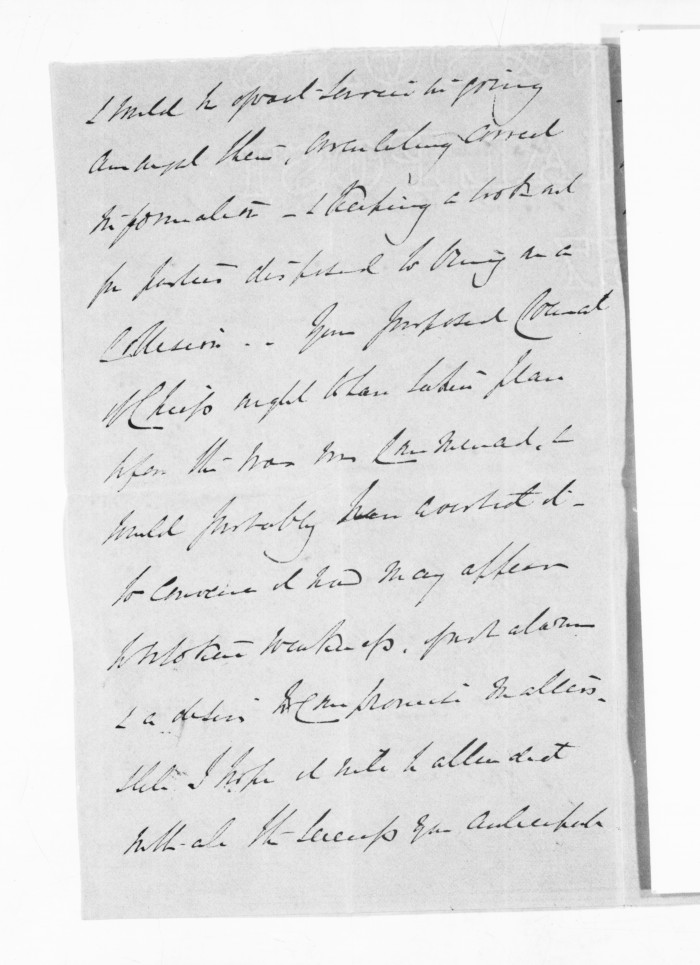 & would be of great service in going
amongst them, circulating correct
information – & keeping a look out
for parties disposed to bring on a
Collision .. Your proposed Council
of Chiefs ought to have taken place
before the war was commenced, &
would probably have averted it –
to convene it now may appear
to betoken weakness, great alarm
& a desire to compromise matters.
Still I hope it will be attended
with all the success you anticipate